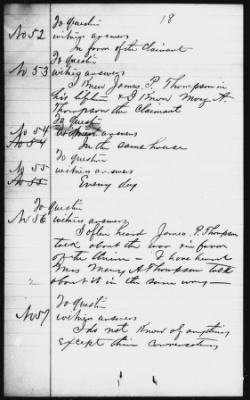 18
To Question
No 52 witness answers
In favor of the Claimant
To Question
No 53 witness answers
I Knew James. P. Thompson in
his lifetime & I Know Mary A.
Thompson the Claimant
To Question
No 54 witness answers
No 54 In the same house
To Question
No 55 witness answers
No 55 Every day
To Question
No 56 witness answers
I often heard James. P. Thompson
talk about the war in favor
of the Union - I have heard
Miss Mary A Thompson talk
about it in the same way -
To Question
No 57 witness answers
I do not know of anything
except their conversation